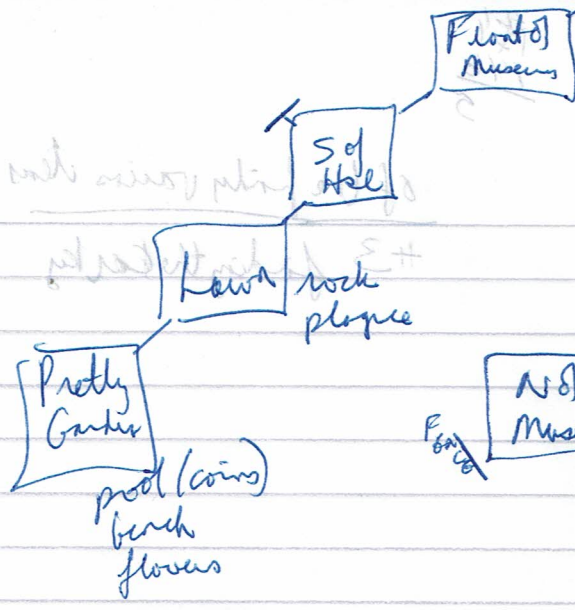 Front of
Museum
S of
Hse
Lawn
rock
plaque
Pretty
Garden
pool (coins)
bench
flowers
N of
Mus
Fence